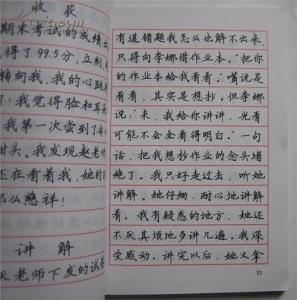 收获
期末考试的成绩出
得了99.5分，立刻
转向我，我的心跳
！我觉得脸和耳
我第一次尝到了
甜头。我发现赵老师
还在看着我，她的
那么慈祥！
讲解
天老师下发的试卷
有道错题我怎么也解不出来，
只得向李娜借作业本。“把你
的作业本给我看看。”嘴说是
看看，其实是想抄。但李娜
说：“来，我给你讲讲，光看
可能不会全看得明白。”一句
话，把我想抄作业的念头堵
绝了。我只好走过去，听她
讲解。她仔细、耐心地讲解
着。我有疑惑的地方，她还
不厌其烦地多讲几遍。我深
受感动。讲完以后，她又拿
53